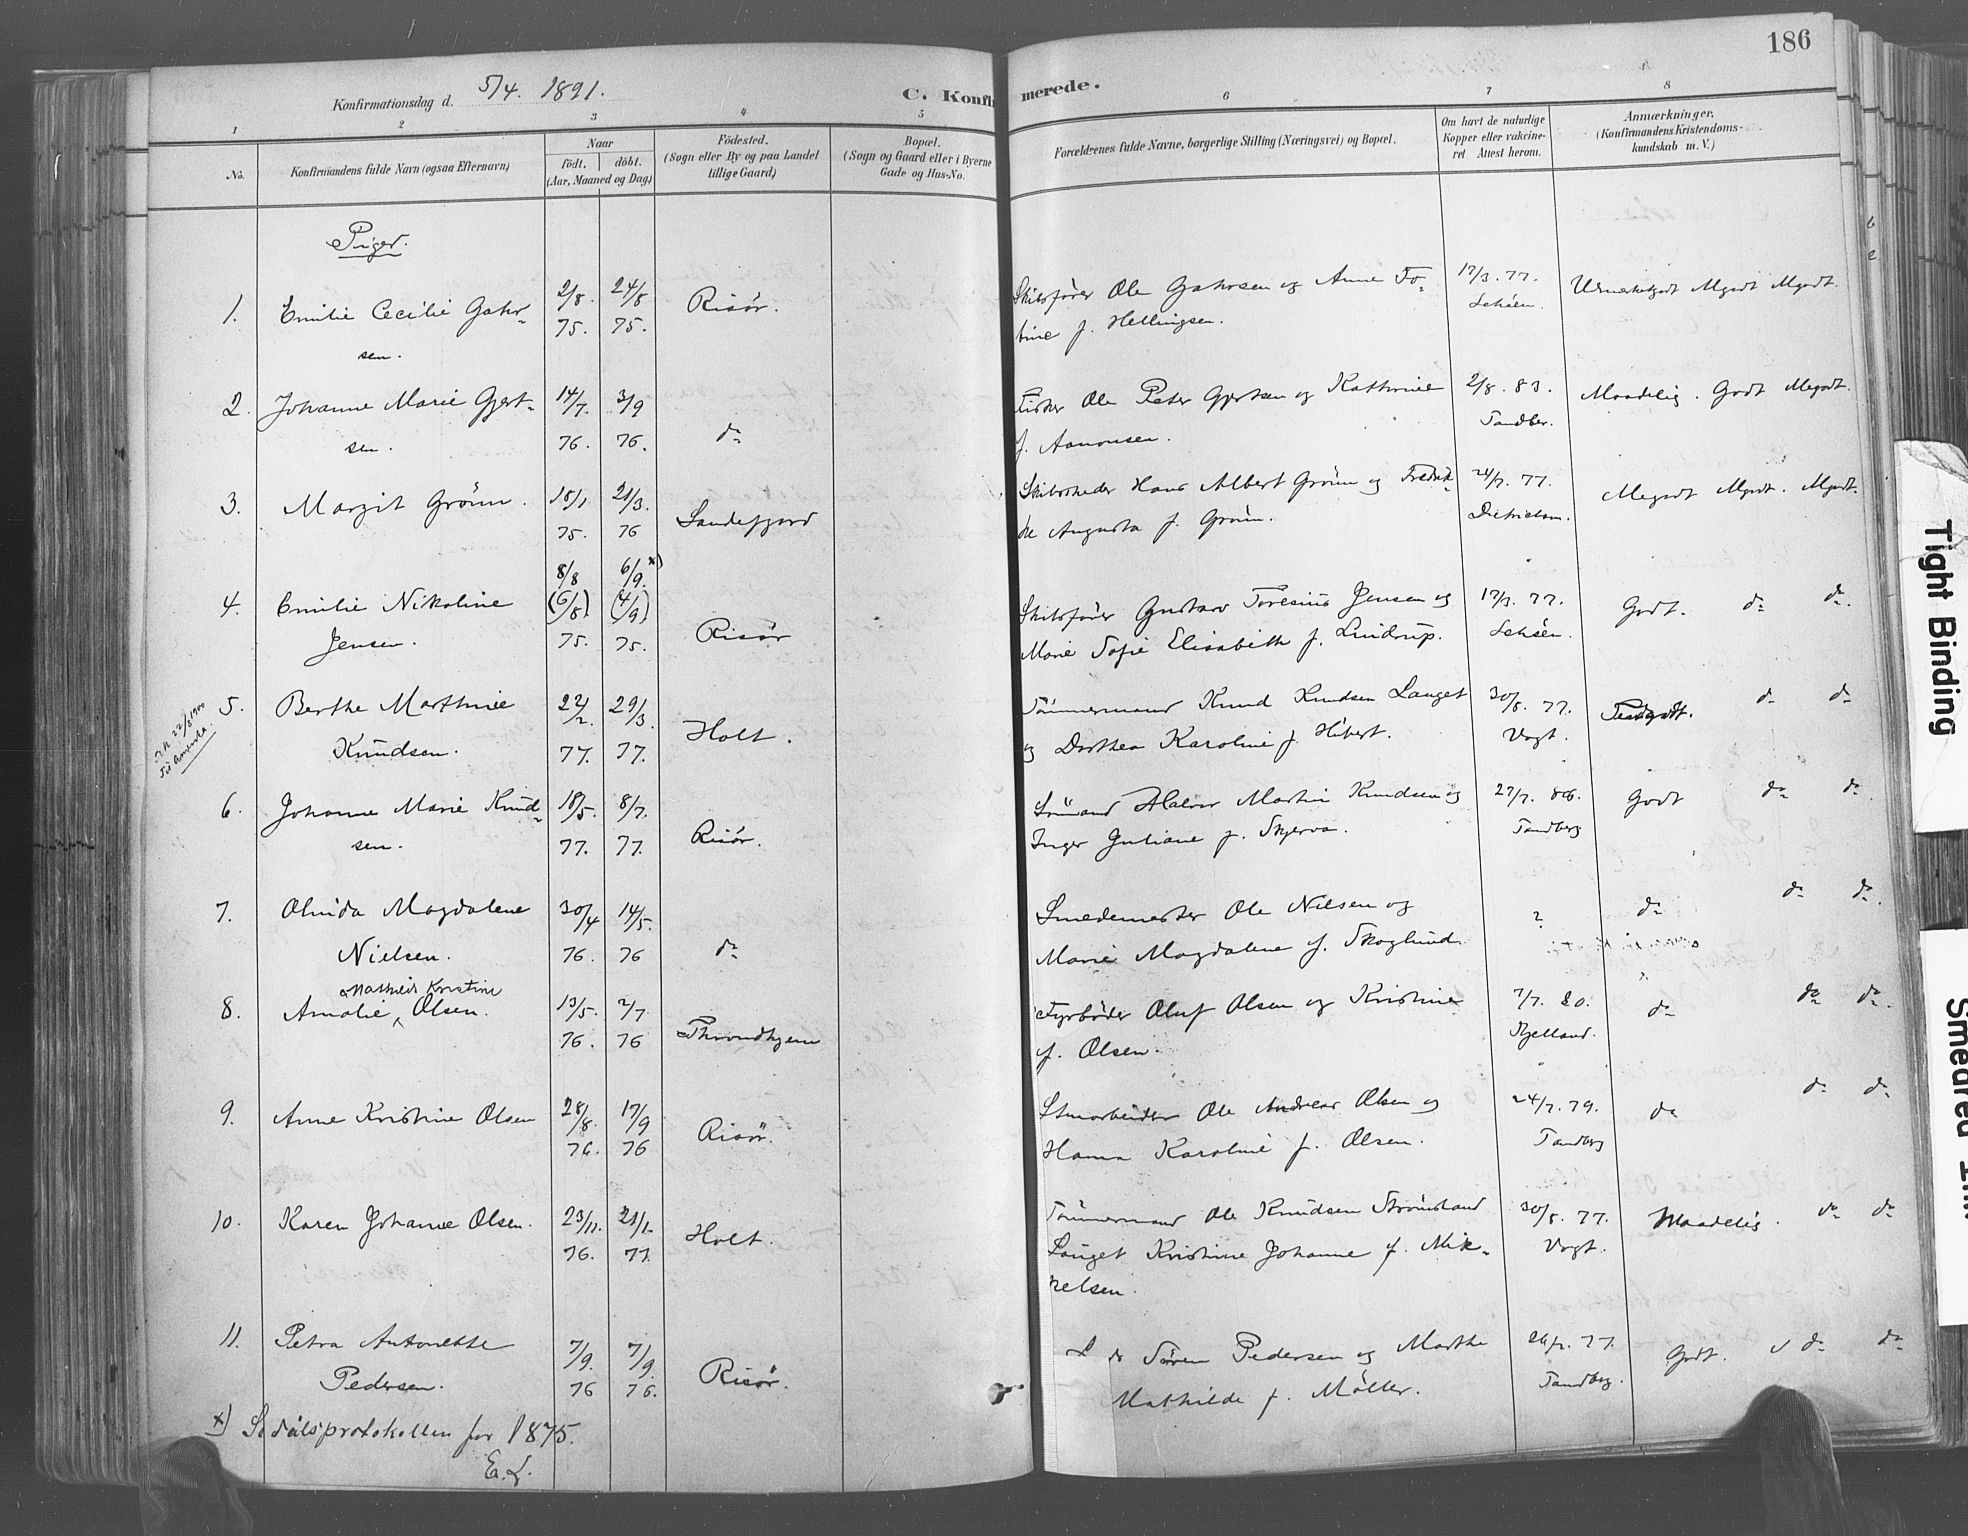 186
Konfirmationsdag d. 5/4. 1891.
C. Konfirmerede.
1 2 3 4 5 6 7 8
No.
Konfirmandens fulde Navn (ogsaa Efternavn)
Naar
födt. döbt.
(Aar, Maaned og Dag)
Födested.
(Sogn eller By og paa Landet
tillige Gaard)
Bopæl.
(Sogn og Gaard eller i Byerne
Gade og Hus-No.
Forældrenes fulde Navne, borgerlige Stilling (Næringsvei) og Bopæl.
Om havt de naturlige
Kopper eller vakcine-
ret Attest herom.
Anmærkninger.
(Konfirmandens Kristendoms-
kundskab m. V.)
Piger.
1. Emilie Cecilie Gahr- 2/8. 24/8 Risör. Skibsförer Ole Gahrsen og Anne To- 17/3. 77. Udmærketgodt Mgodt Mgodt.
sen. 75. 75. tine f. Hellingsen. Schéen.
2. Johanne Marie Gjert- 14/7. 3/9 do Fisker Ole Peter Gjertsen og Kathrine 2/8. 83. Maadelig. Godt Megodt.
sen. 76. 76. f. Aanonsen. Tandber.
3. Margit Grönn. 18/1 21/3. Sandefjord Skibsrheder Hans Albert Grönn og Fredrik- 24/7. 77. Megodt Mgodt. Mgodt.
75. 76 ke Augusta f. Grönn. Dietrichson.
8/8 6/9. x)
4. Emilie Nikoline (6/8) (4/9) Risör Skibsförer Gustav Toresius Jensen og 17/3. 77. Godt. do do.
Jensen. 75. 75. Marie Sofie Elisabeth f. Lindrup. Schéen.
5. Berthe Marthine 22/2. 29/3. Holt. Tömmermand Knud Knudsen Langet 30/8. 77. do do
Knudsen. 77. 77. og Dorthea Karoline f. Hibert. Vogt.
6. Johanne Marie Knud- 18/5. 8/7. Risör. Sömand Halvor Martin Knudsen og 27/7. 86. Godt do do.
sen. 77. 77. Inger Juliane f. Skjerva. Tandberg
7. Olmida Magdalene 30/4 14/5. do Smedemester Ole Nilsen og ? do do do.
Nielsen. 76. 76 Marie Magdalene f. Skoglund.
Mathilde Kristine
8. Amalie Olsen. 13/5. 2/7 Throndhjem Fyrböder Oluf Olsen og Kristine 7/7. 80. do do do.
76. 76 f. Olsen. Kjelland.
9. Anne Kristine Olsen 28/8. 17/9 Risör. Stuarbeider Ole Andreas Olsen og 24/7. 79. do do do
76. 76 Hanna Karoline f. Olsen. Tandberg
10. Karen Johanne Olsen. 23/11. 21/1. Holt. Tömmermand Ole Knudsen Strömsland 30/8. 77. Maadelig. do do
76. 77 Langet Kristine Johanne f. Mik- Vogt.
kelsen.
11. Petra Antonette 7/9. 7/9. Risör. Sören Pedersen og Marthe 77. Godt. do do
Pedersen. 76 76. Mathilde f. Möller. Tandberg.
x) Se daabsprotokollen for 1875.
E. L.
Tight Binding
Smeared Ink